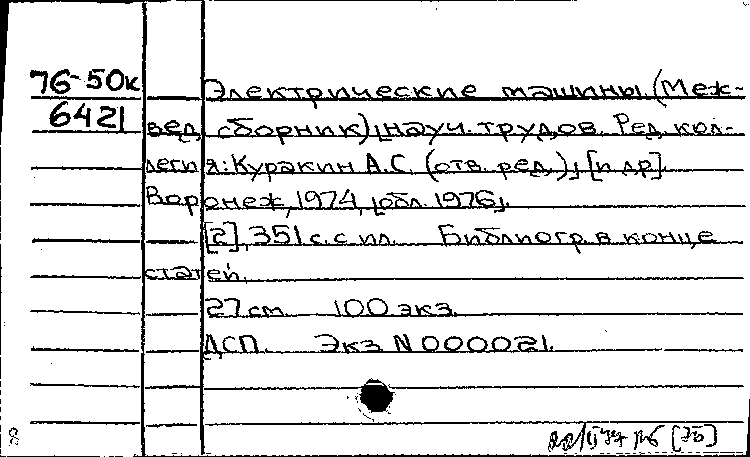 76-50к Электрические машины. (Меж-
6421 вед. сборник) [науч. трудов. Ред. кол-
легия: Куракин А.С. (отв. ред.)] [и др].
Воронеж, 1974, [обл. 1976].
[2], 351 с. с ил. Библиогр. в конце
статей.
27 см. 100 экз.
ДСП. Экз. N 000021.
[75]